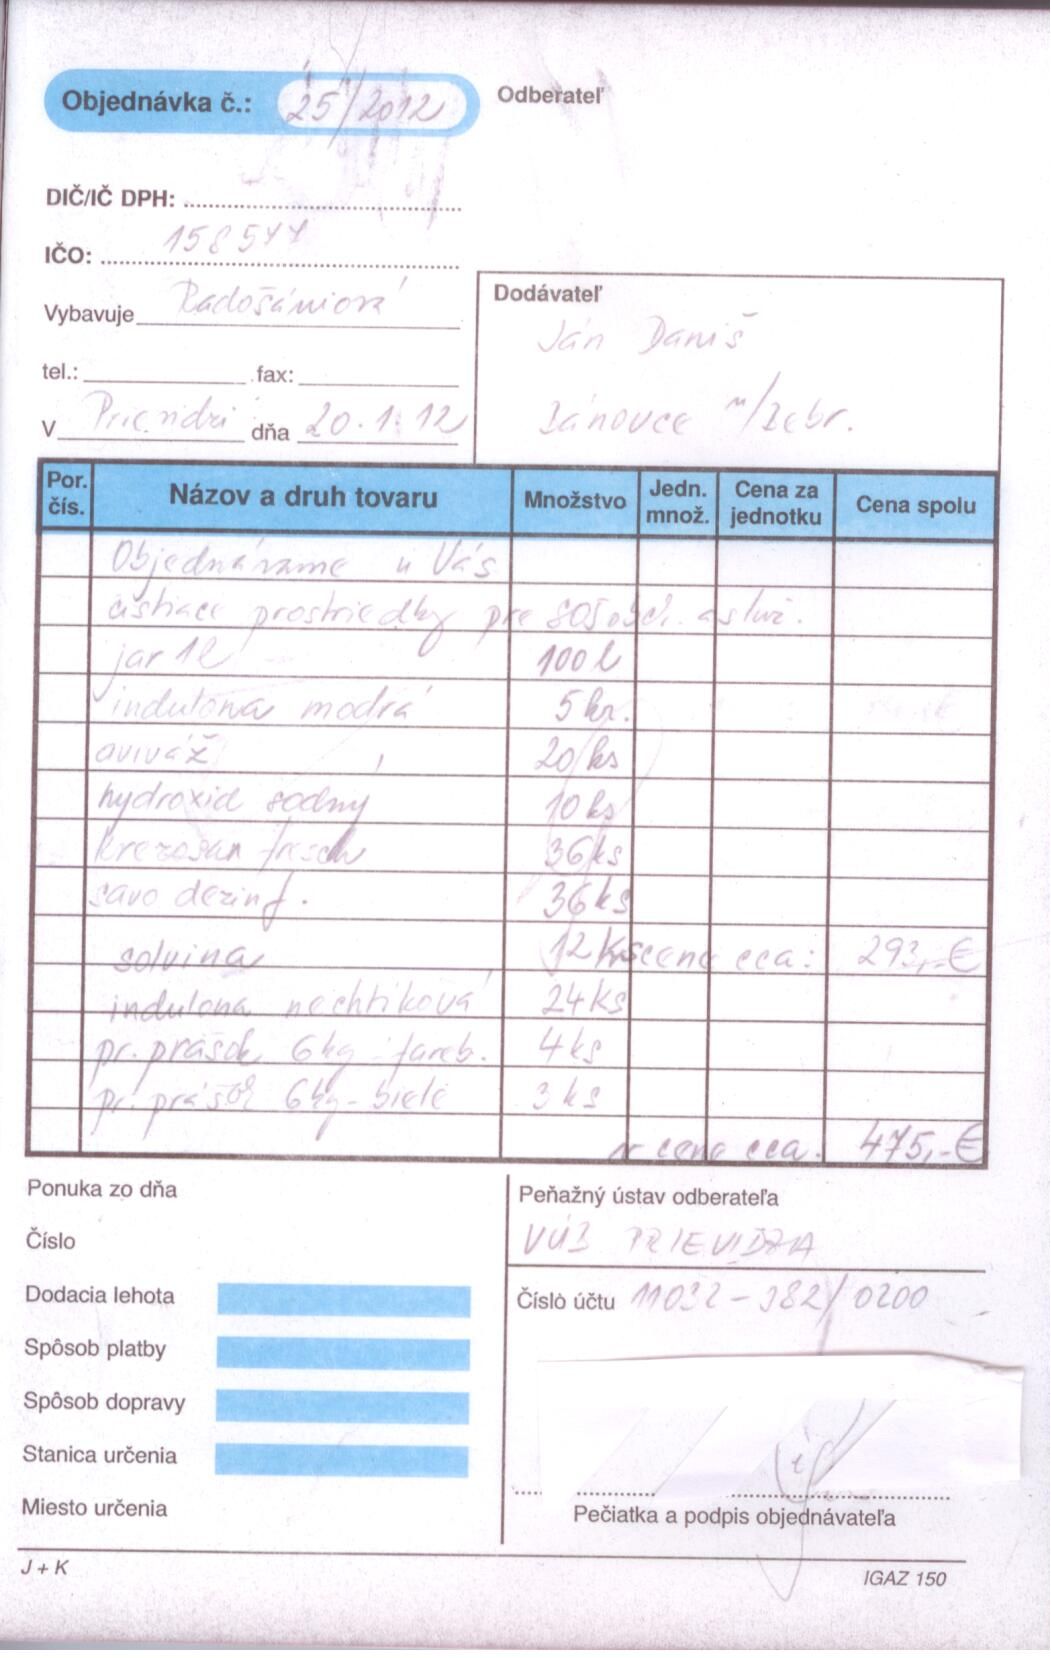 Objednávka č.: 25/2012
Odberateľ
DIČ/IČ DPH:
IČO: 158577
Vybavuje Radošániová
tel.: fax:
V Prievidzi dňa 20.1.12
Dodávateľ
Ján Daniš
Bánovce n/Bebr.
Por. čís. Názov a druh tovaru Množstvo Jedn. množ. Cena za jednotku Cena spolu
Objednávame u Vás
čistiace prostriedky pre SOŠ
jar 1l 100 l
indulona modrá 5 kr.
aviváž 20 ks
hydroxid sodný 10 ks
krezosan fresch 36 ks
savo dezinf. 36 ks
solvina 12 ks cena cca: 293,-€
indulona nechtíková 24 ks
pr. prášok 6kg - fareb. 4 ks
pr. prášok 6kg - biele 3 ks
cena cca. 475,-€
Ponuka zo dňa
Číslo
Dodacia lehota
Spôsob platby
Spôsob dopravy
Stanica určenia
Miesto určenia
Peňažný ústav odberateľa
VÚB PRIEVIDZA
Číslo účtu 11032-382/0200
Pečiatka a podpis objednávateľa
J + K
IGAZ 150